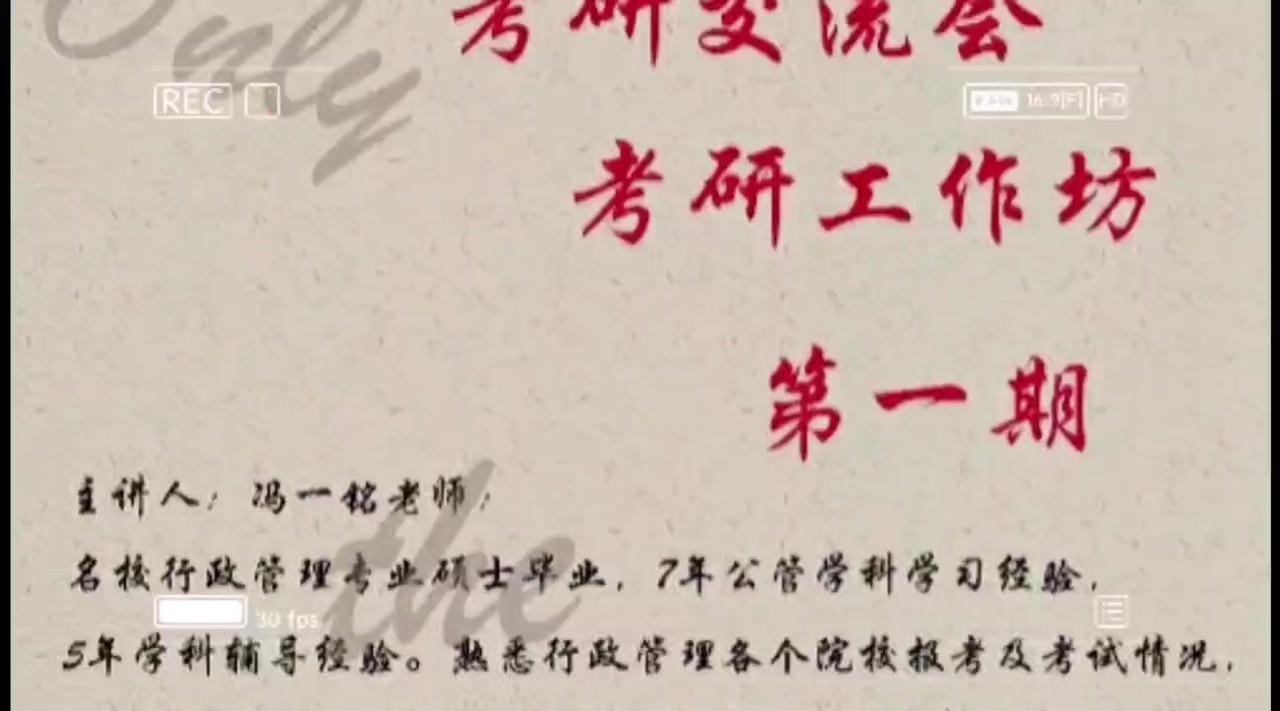 Only
考研交流会
REC
RAW 16:9[F] HD
考研工作坊
第一期
主讲人：冯一铭老师；
the
名校行政管理专业硕士毕业，7年公管学科学习经验，
30 fps
5年学科辅导经验。熟悉行政管理各个院校报考及考试情况，